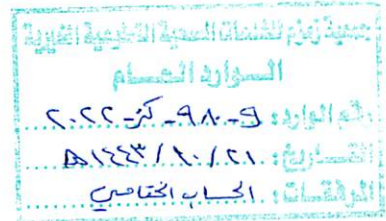 جمعية زمزم للخدمات الصحية التطوعية الخيرية
الـوارد العـام
رقم الوارد: و-٩٨٠-كز-٢٠٢٢
التـاريخ: ١٤٤٣/١٠/٢١هـ
المرفقات: الحساب الختامي